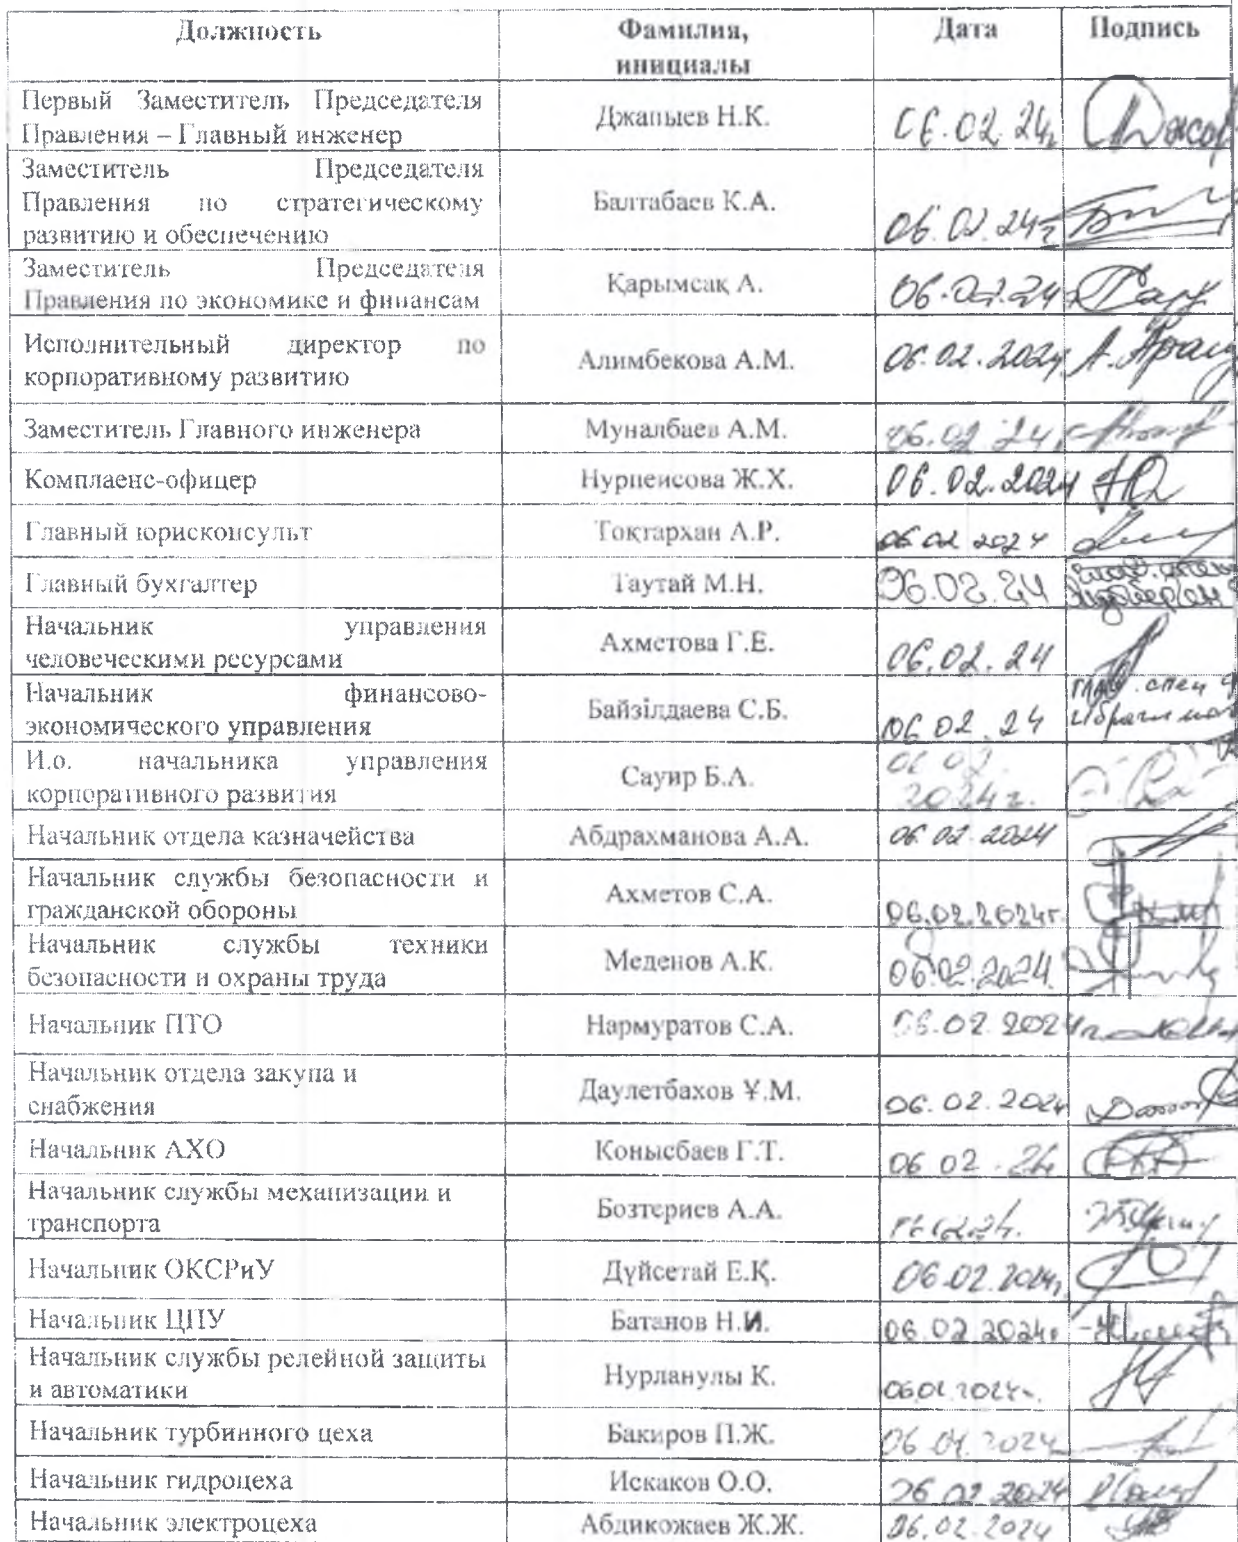 Должность Фамилия, Дата Подпись
инициалы
Первый Заместитель Председателя
Правления – Главный инженер Джапыев Н.К. 06.02.24г
Заместитель Председателя
Правления по стратегическому Балтабаев К.А. 06.02.24г
развитию и обеспечению
Заместитель Председателя
Правления по экономике и финансам Қарымсақ А. 06.02.24
Исполнительный директор по
корпоративному развитию Алимбекова А.М. 06.02.2024
Заместитель Главного инженера Муналбаев А.М. 06.02.24
Комплаенс-офицер Нурпеисова Ж.Х. 06.02.2024
Главный юрисконсульт Тоқтархан А.Р. 06.02.2024
Главный бухгалтер Таутай М.Н. 06.02.24
Начальник управления
человеческими ресурсами Ахметова Г.Е. 06.02.24
Начальник финансово-
экономического управления Байзілдаева С.Б. 06.02.24 глав. спец
И.о. начальника управления
корпоративного развития Сауир Б.А. 06.02.
2024г.
Начальник отдела казначейства Абдрахманова А.А. 06.02.2024
Начальник службы безопасности и
гражданской обороны Ахметов С.А. 06.02.2024г.
Начальник службы техники
безопасности и охраны труда Меденов А.К. 06.02.2024
Начальник ПТО Нармуратов С.А. 06.02.2024г
Начальник отдела закупа и
снабжения Даулетбахов Ұ.М. 06.02.2024
Начальник АХО Конысбаев Г.Т. 06.02.24
Начальник службы механизации и
транспорта Бозтериев А.А.
Начальник ОКСРиУ Дүйсетай Е.Қ. 06.02.2024г
Начальник ЦПУ Батанов Н.И. 06.02.2024г
Начальник службы релейной защиты
и автоматики Нурланулы К. 06.02.2024г.
Начальник турбинного цеха Бакиров П.Ж.
Начальник гидроцеха Искаков О.О. 06.02.2024
Начальник электроцеха Абдикожаев Ж.Ж. 06.02.2024